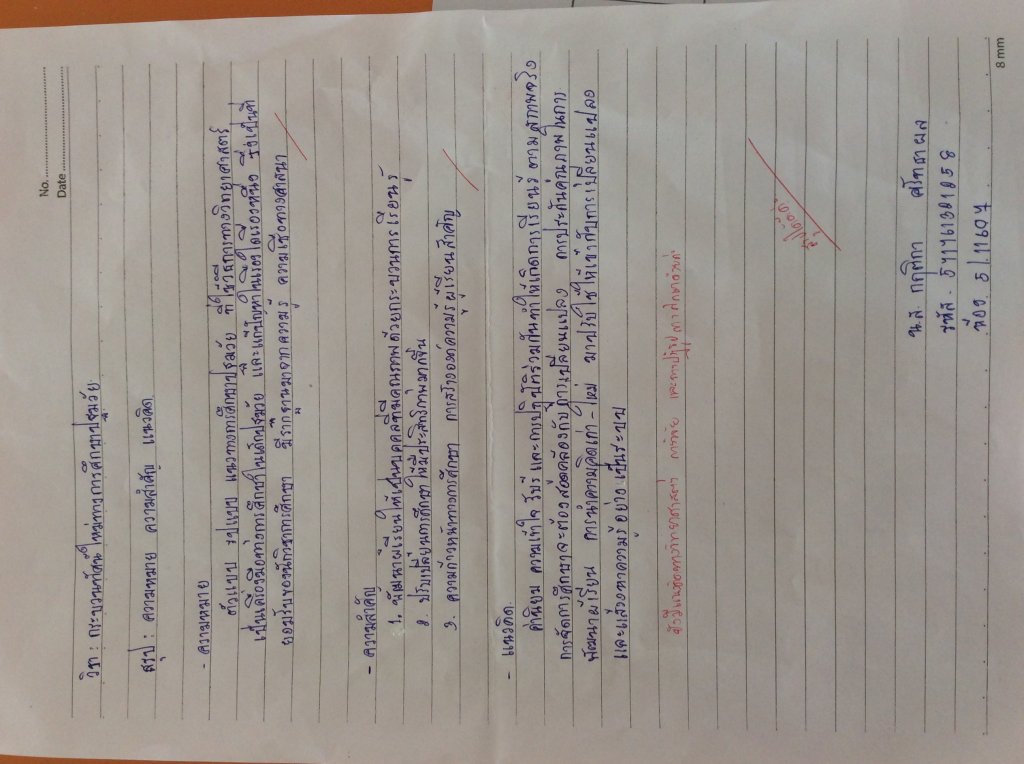 No. ........................
Date ........................
วิชา : กระบวนทัศน์ใหม่ทางการศึกษาปฐมวัย
สรุป : ความหมาย ความสำคัญ แนวคิด
- ความหมาย
ตัวแบบ รูปแบบ แนวทางการศึกษาปฐมวัย ที่ใช้วิธีการทางวิทยาศาสตร์
เป็นเครื่องมือทางการศึกษาในเด็กปฐมวัย และแก้ปัญหาในเรื่องใดเรื่องหนึ่ง ซึ่งเป็นที่
ยอมรับของนักวิชาการศึกษา มีรากฐานมาจากความรู้ ความเชื่อทางศาสนา
- ความสำคัญ
1. พัฒนาผู้เรียนให้เป็นบุคคลที่มีคุณภาพด้วยกระบวนการเรียนรู้
2. ปรับเปลี่ยนการศึกษาให้มีประสิทธิภาพมากขึ้น
3. ความก้าวหน้าทางการศึกษา การสร้างองค์ความรู้ผู้เรียนสำคัญ
- แนวคิด
ค่านิยม ความเข้าใจ รับรู้ และการปฏิบัติร่วมกันทำให้เกิดการเรียนรู้ตามสภาพจริง
การจัดการศึกษาจะต้องสอดคล้องกับการเปลี่ยนแปลง การประกันคุณภาพในการ
พัฒนาผู้เรียน การนำความคิดเก่า - ใหม่ มาปรับใช้ให้เข้ากับการเปลี่ยนแปลง
และแสวงหาความรู้อย่างเป็นระบบ
การวิจัย และการปฏิรูปการศึกษา
น.ส. กฤติกา
รหัส. 5711613010
ห้อง.
8 mm